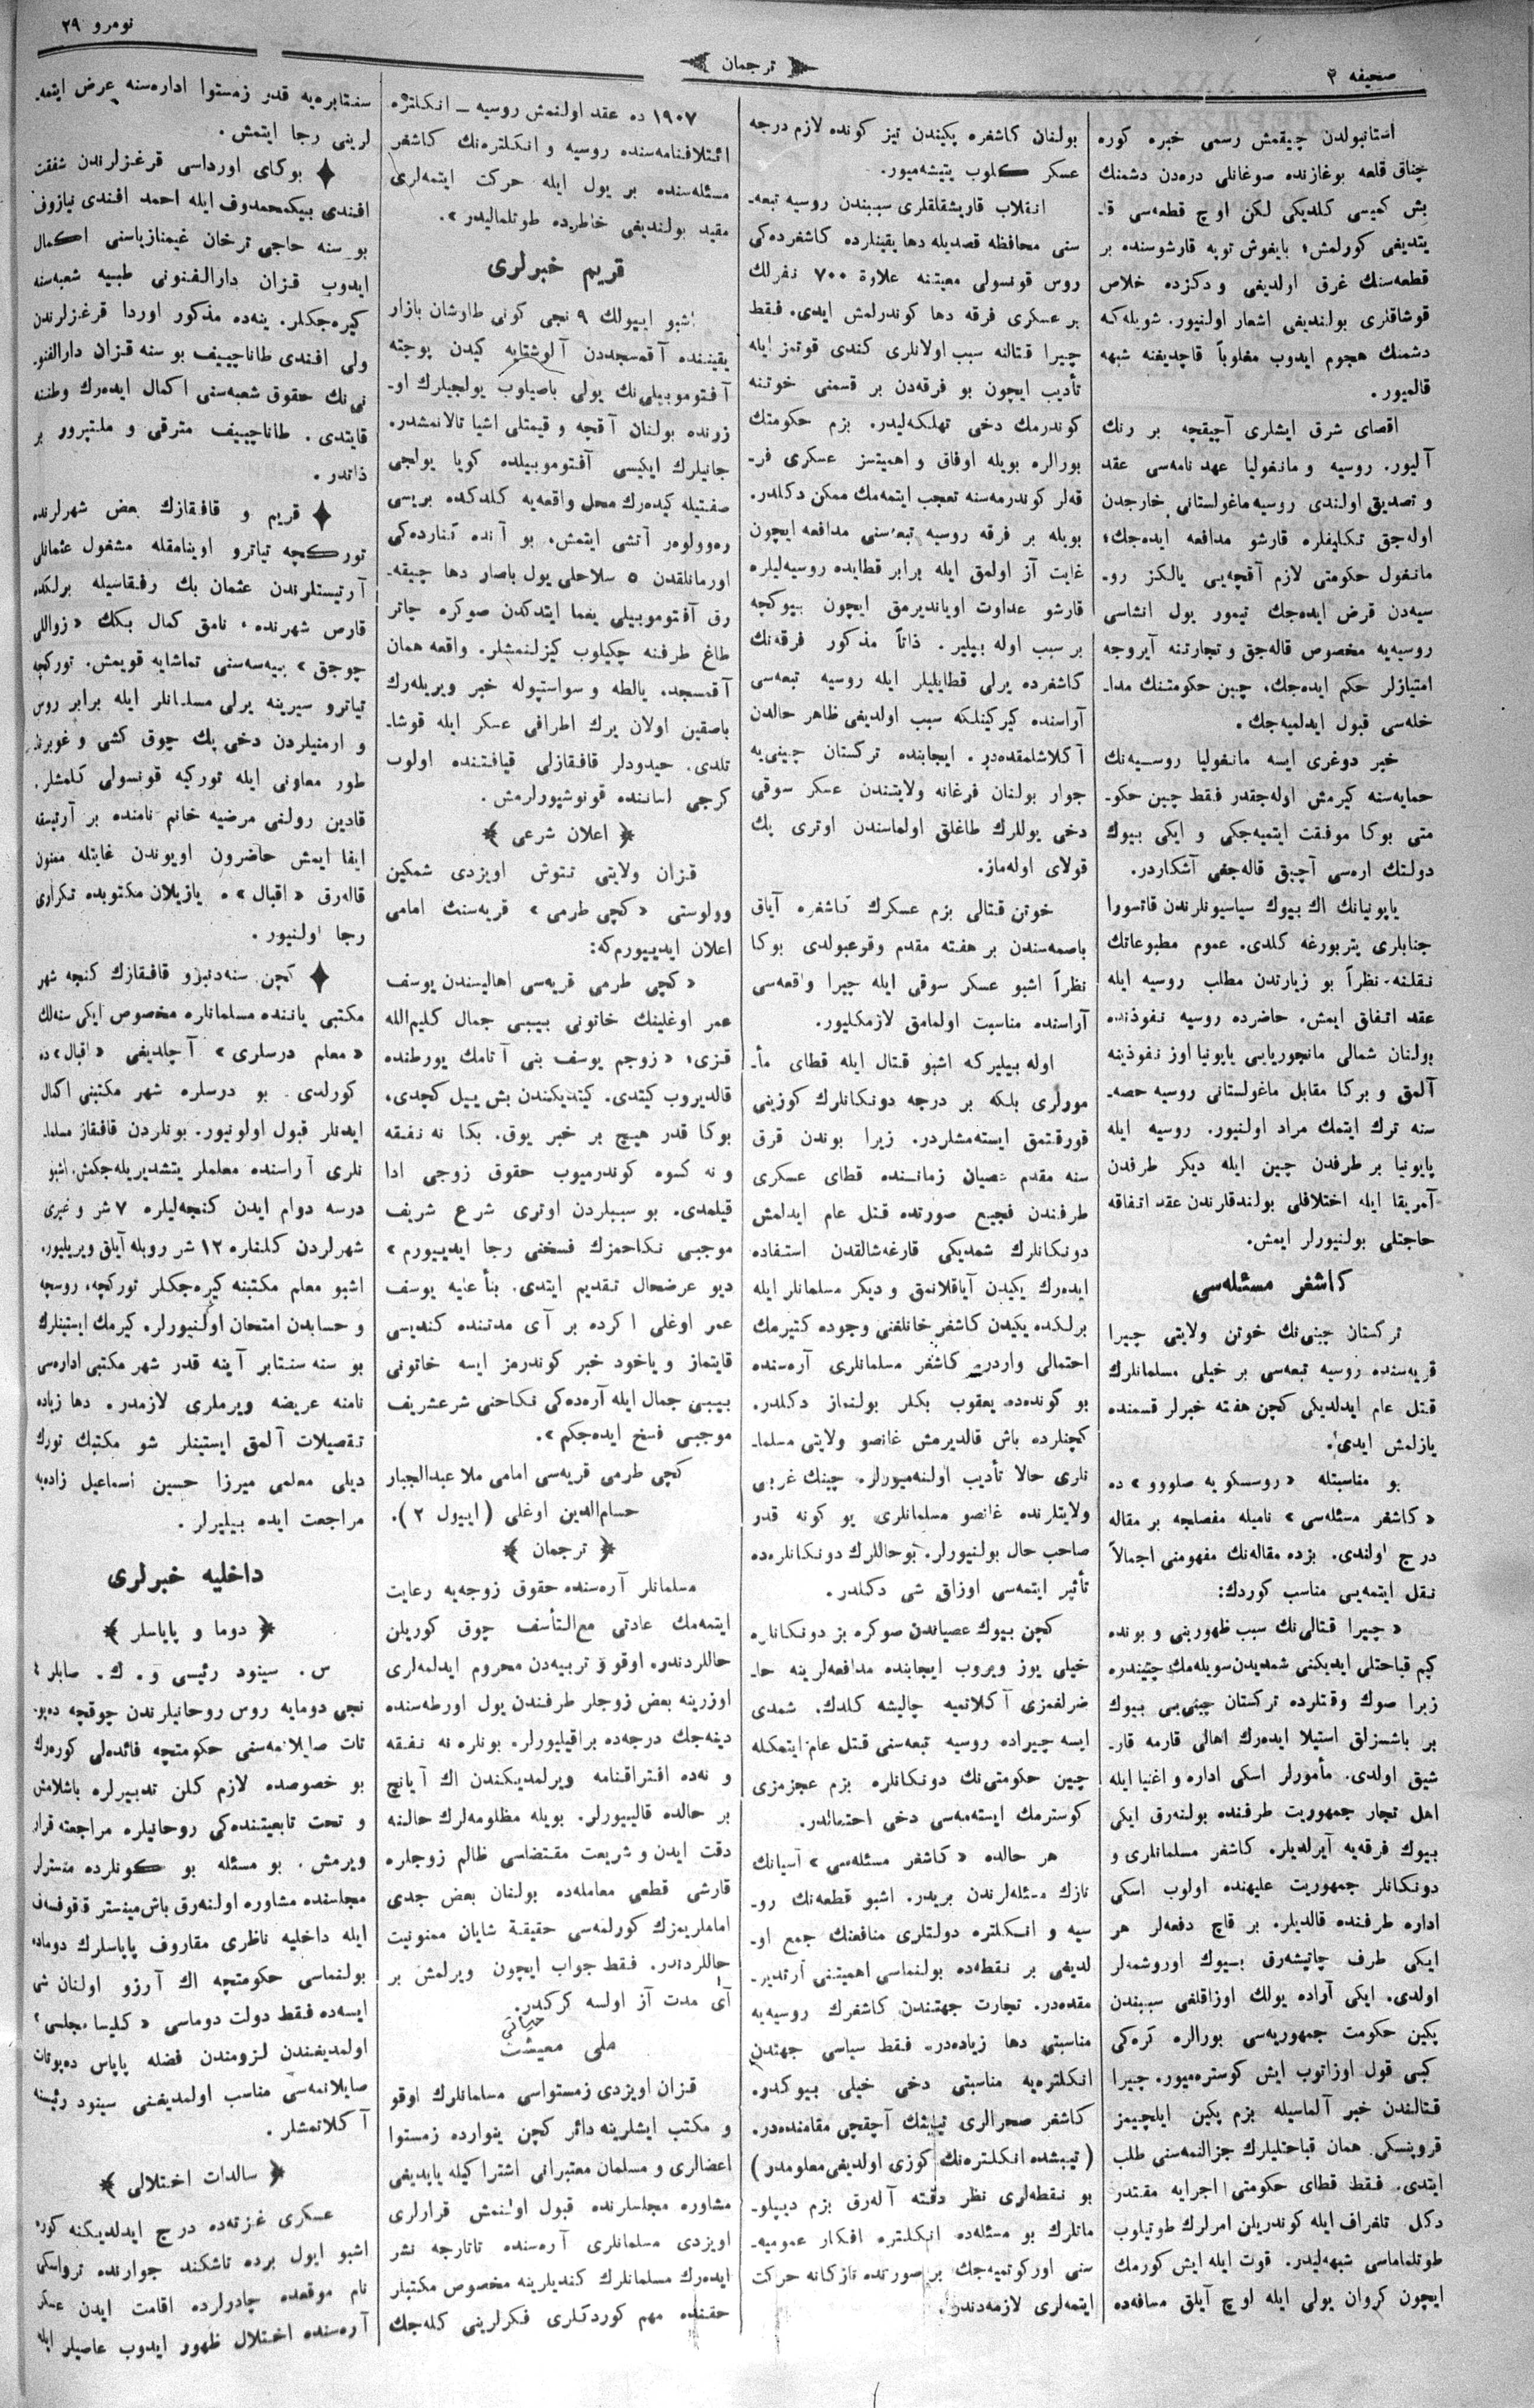 صحیفه ٢
ترجمان
نومرو ٢٩
استانبولدن چیقمش رسمی خبره كوره
چناق قلعه بوغازنده صوغانلی دره‌دن دشمنك
بش كمیسی كلدیكی لكن اوچ قطعه‌سی قا-
یتدیغی كورلمش؛ بایغوش توپه قارشوسنده بر
قطعه‌سنك غرق اولدیغی و دكزده خلاص
قوشاقلری بولندیغی اشعار اولنیور. شویله‌كه
دشمنك هجوم ایدوب مغلوباً قاچدیغنه شبهه
قالمیور.
اقصای شرق ایشلری آچیقچه بر رنك
آلیور. روسیه و مانغولیا عهد نامه‌سی عقد
و تصدیق اولندی روسیه ماغولستانی خارجدن
اوله‌جق تكلیفلره قارشو مدافعه ایده‌جك؛
مانغول حكومتی لازم آقچه‌یی یالكز رو-
سیه‌دن قرض ایده‌جك تیمور یول انشاسی
روسیه‌یه مخصوص قاله‌جق و تجارتنه آیروجه
امتیازلر حكم ایده‌جك، چین حكومتنك مدا-
خله‌سی قبول ایدلمیه‌جك.
خبر دوغری ایسه مانغولیا روسیه‌نك
حمایه‌سنه كیرمش اوله‌جقدر فقط چین حكو-
متی بوكا موفقت ایتمیه‌جكی و ایكی بیوك
دولتك اره‌سی آچیق قاله‌جغی آشكاردر.
یاپونیانك اك بیوك سیاسیونلرندن قاتسورا
جنابلری پتربورغه كلدی. عموم مطبوعاتك
نقلنه نظراً بو زیارتدن مطلب روسیه ایله
عقد اتفاق ایمش. حاضرده روسیه نفوذنده
بولنان شمالی مانچوریایی یاپونیا اوز نفوذینه
آلمق و بركا مقابل ماغولستانی روسیه حصه-
سنه ترك ایتمك مراد اولنیور. روسیه ایله
یاپونیا بر طرفدن چین ایله دیكر طرفدن
آمریقا ایله اختلافلی بولندقلرندن عقد اتفاقه
حاجتلی بولنیورلر ایمش.
كاشغر مسئله‌سی
تركستان چینی‌نك خوتن ولایتی چیرا
قریه‌سنده روسیه تبعه‌سی بر خیلی مسلمانلرك
قتل عام ایدلدیكی كچن هفته خبرلر قسمنده
یازلمش ایدی.
بو مناسبتله «روسسكویه صلووو» ده
«كاشغر مسئله‌سی» نامیله مفصلجه بر مقاله
درج اولندی. بزده مقاله‌نك مفهومنی اجمالاً
نقل ایتمه‌یی مناسب كوردك:
«چیرا قتالی‌نك سبب ظهورینی و بونده
كیم قباحتلی ایدیكنی شمدیدن سویله‌مك چتیندره
زیرا صوك وقتلرده تركستان چینی‌یی بیوك
بر باشسزلق استیلا ایده‌رك اهالی قارمه قار-
شیق اولدی. مأمورلر اسكی اداره و اغنیا ایله
اهل تجار جمهوریت طرفنده بولنه‌رق ایكی
بیوك فرقه‌یه آیرلدیلر. كاشغر مسلمانلری و
دونكانلر جمهوریت علیهنده اولوب اسكی
اداره طرفنده قالدیلر. بر قاچ دفعه‌لر هر
ایكی طرف چاتیشه‌رق بسیوك اوروشمه‌لر
اولدی. ایكی آراده یولك اوزاقلغی سببندن
پكین حكومت جمهوریه‌سی بورالره كره‌كی
كبی قول اوزاتوب ایش كوستره‌میور. چیرا
قتالندن خبر آلماسیله بزم پكین ایلچیمز
قروپنسكی همان قباحتلیلرك جزالنمه‌سنی طلب
ایتدی. فقط قطای حكومتی اجرایه مقتدر
دكل. تلغراف ایله كوندریلن امرلرك طوتیلوب
طوتلماماسی شبهه‌لیدر. قوت ایله ایش كورمك
ایچون كروان یولی ایله اوچ آیلق مسافه‌ده
بولنان كاشغره پكیندن تیز كونده لازم درجه
عسكر كلوب یتیشه‌میور.
انقلاب قاریشقلقلری سببندن روسیه تبعه-
سنی محافظه قصدیله دها یقینلرده كاشغرده‌كی
روس قونسولی معیتنه علاوةً ٧٠٠ نفرلك
بر عسكری فرقه دها كوندرلمش ایدی. فقط
چیرا قتالنه سبب اولانلری كندی قوتمز ایله
تأدیب ایچون بو فرقه‌دن بر قسمنی خوتنه
كوندرمك دخی تهلكه‌لیدر. بزم حكومتك
بورالره بویله اوفاق و اهمیتسز عسكری فر-
قه‌لر كوندرمه‌سنه تعجب ایتمه‌مك ممكن دكلدر.
بویله بر فرقه روسیه تبعه‌سنی مدافعه ایچون
غایت آز اولمق ایله برابر قطایده روسیه‌لیلره
قارشو عداوت اویاندیرمق ایچون بیوكچه
بر سبب اوله بیلیر. ذاتاً مذكور فرقه‌نك
كاشغرده یرلی قطایلیلر ایله روسیه تبعه‌سی
آراسنده كیركینلكه سبب اولدیغی ظاهر حالدن
آكلاشلمقده‌در. ایجابنده تركستان چینی‌یه
جوار بولنان فرغانه ولایتندن عسكر سوقی
دخی یوللرك طاغلق اولماسندن اوتری پك
قولای اوله‌ماز.
خوتن قتالی بزم عسكرك كاشغره آیاق
باصمه‌سندن بر هفته مقدم وقوعبولدی بوكا
نظراً اشبو عسكر سوقی ایله چیرا واقعه‌سی
آراسنده مناسبت اولمامق لازمكلیور.
اوله بیلیركه اشبو قتال ایله قطای مأ-
مورلری بلكه بر درجه دونكانلرك كوزینی
قورقتمق ایسته‌مشلردر. زیرا بوندن قرق
سنه مقدم عصیان زماننده قطای عسكری
طرفندن فجیع صورتده قتل عام ایدلمش
دونكانلرك شمدیكی قارغه‌شالقدن استفاده
ایده‌رك یكیدن آیاقلانمق و دیكر مسلمانلر ایله
برلكده یكیدن كاشغر خانلغنی وجوده كتیرمك
احتمالی واردر. كاشغر مسلمانلری آره‌سنده
بو كونده‌ده یعقوب بكلر بولنماز دكلدر.
كچنلرده باش قالدیرمش غانصو ولایتی مسلما-
نلری حالا تأدیب اولنه‌میورلر. چینك غربی
ولایتلرنده غانصو مسلمانلری بو كونه قدر
صاحب حال بولنیورلر. بوحاللرك دونكانلره‌ده
تأثیر ایتمه‌سی اوزاق شی دكلدر.
كچن بیوك عصیاندن صوكره بز دونكانلره
خیلی یوز ویروب ایجابنده مدافعه‌لرینه حا-
ضرلغمزی آكلاتمیه چالیشه كلدك. شمدی
ایسه چیراده روسیه تبعه‌سنی قتل عام ایتمكله
چین حكومتی‌نك دونكانلره بزم عجزمزی
كوسترمك ایسته‌مه‌سی دخی احتمالدر.
هر حالده «كاشغر مسئله‌سی» آسیانك
نازك مسئله‌لرندن بریدر. اشبو قطعه‌نك رو-
سیه و انكلتره دولتلری منافعنك جمع او-
لدیغی بر نقطه‌ده بولنماسی اهمیتنی آرتدیر-
مقده‌در. تجارت جهتندن كاشغرك روسیه‌یه
مناسبتی دها زیاده‌در. فقط سیاسی جهتدن
انكلتره‌یه مناسبتی دخی خیلی بیوكدر.
كاشغر صحرالری تیبتك آچقچی مقامنده‌در.
(تیبتده انكلتره‌نك كوزی اولدیغی معلومدر)
بو نقطه‌لری نظر دقته آله‌رق بزم دیپلو-
ماتلرك بو مسئله‌ده انكلتره افكار عمومیه-
سنی اوركوتمیه‌جك بر صورتده نازكانه حركت
ایتمه‌لری لازمه‌دندر.
١٩٠٧ ده عقد اولنمش روسیه — انكلتره
ائتلافنامه‌سنده روسیه و انكلتره‌نك كاشغر
مسئله‌سنده بر یول ایله حركت ایتمه‌لری
مقید بولندیغی خاطرده طوتلمالیدر».
قریم خبرلری
اشبو ایپولك ٩ نجی كونی طاوشان بازار
یقیننده آقمسجددن آلوشتایه كیدن پوچته
آفتوموبیلی‌نك یولی باصیلوب یولجیلرك او-
زرنده بولنان آقچه و قیمتلی اشیا تالانمشدر.
جانیلرك ایكیسی آفتوموبیلده كویا یولجی
صفتیله كیده‌رك محل واقعه‌یه كلدكده بریسی
ره‌وولوه‌ر آتشی ایتمش. بو آنده كنارده‌كی
اورمانلقدن ٥ سلاحلی یول باصار دها چیقه-
رق آفتوموبیلی یغما ایتدكدن صوكره چاتر
طاغ طرفنه چكیلوب كیزلنمشلر. واقعه همان
آقمسجد، یالطه و سواستپوله خبر ویریله‌رك
باصقین اولان یرك اطرافی عسكر ایله قوشا-
تلدی. حیدودلر قافقازلی قیافتنده اولوب
كرجی لساننده قونوشیورلرمش.
﴿ اعلان شرعی ﴾
قزان ولایتی تتوش اویزدی شمكین
وولوستی «كچی طرمی» قریه‌سنك امامی
اعلان ایدییورم‌كه:
«كچی طرمی قریه‌سی اهالیسندن یوسف
عمر اوغلینك خاتونی بیبی جمال كلیم‌الله
قزی؛ «زوجم یوسف بنی آتامك یورطنده
قالدیروب كیتدی. كیتدیكندن بش ییل كچدی،
بوكا قدر هیچ بر خبر یوق. بكا نه نفقه
و نه كسوه كوندرمیوب حقوق زوجی ادا
قیلمدی. بو سببلردن اوتری شرع شریف
موجبی نكاحمزك فسخنی رجا ایدییورم»
دیو عرضحال تقدیم ایتدی. بنأ علیه یوسف
عمر اوغلی اكرده بر آی مدتنده كندیسی
قایتماز و یاخود خبر كوندرمز ایسه خاتونی
بیبی جمال ایله آره‌ده‌كی نكاحنی شرعشریف
موجبی فسخ ایده‌جكم».
كچی طرمی قریه‌سی امامی ملا عبدالجبار
حسام‌الدین اوغلی (ایپول ٢).
﴿ ترجمان ﴾
مسلمانلر آره‌سنده حقوق زوجه‌یه رعایت
ایتمه‌مك عادتی مع‌التأسف چوق كوریلن
حاللردندر. اوقو و تربیه‌دن محروم ایدلمه‌لری
اوزرینه بعض زوجلر طرفندن یول اورطه‌سنده
دینه‌جك درجه‌ده براقیلیورلر. بونلره نه نفقه
و نه‌ده افتراقنامه ویرلمدیكندن اك آیانچ
بر حالده قالییورلر. بویله مظلومه‌لرك حالنه
دقت ایدن و شریعت مقتضاسی ظالم زوجلره
قارشی قطعی معامله‌ده بولنان بعض جدی
اماملریمزك كورلمه‌سی حقیقة شایان ممنونیت
حاللردندر. فقط جواب ایچون ویرلمش بر
آی مدت آز اولسه كركدر.
حیاتی
ملی معیشت
قزان اویزدی زمستواسی مسلمانلرك اوقو
و مكتب ایشلرینه دائر كچن ینوارده زمستوا
اعضالری و مسلمان معتبرانی اشتراكیله یاپدیغی
مشاوره مجلسلرنده قبول اولنمش قرارلری
اویزدی مسلمانلری آره‌سنده تاتارجه نشر
ایده‌رك مسلمانلرك كندیلرینه مخصوص مكتبلر
حقنده مهم كوردكلری فكرلرینی كله‌جك
سنتابره‌یه قدر زمستوا اداره‌سنه عرض ایتمه-
لرینی رجا ایتمش.
✦ بوكای اورداسی قرغزلرندن شفقت
افندی بیكمحمدوف ایله احمد افندی نیازوف
بو سنه حاجی ترخان غیمنازیاسنی اكمال
ایدوب قزان دارالفنونی طبیه شعبه‌سنه
كیره‌جكلر. ینه‌ده مذكور اوردا قرغزلرندن
ولی افندی طاناچییف بو سنه قزان دارالفنو-
نی‌نك حقوق شعبه‌سنی اكمال ایده‌رك وطننه
قایتدی. طاناچییف مترقی و ملتپرور بر
ذاتدر.
✦ قریم و قافقازك بعض شهرلرنده
توركچه تیاترو اوینامقله مشغول عثمانلی
آرتیستلرندن عثمان بك رفقاسیله برلكده
قارص شهرنده، نامق كمال بكك «زواللی
چوجق» پیه‌سه‌سنی تماشایه قویمش. توركچه
تیاترو سیرینه یرلی مسلمانلر ایله برابر روس
و ارمنیلردن دخی پك چوق كشی و غوبرنا-
طور معاونی ایله توركیه قونسولی كلمشلر.
قادین رولنی مرضیه خانم نامنده بر آرتیسقه
ایفا ایمش حاضرون اویوندن غایتله ممنون
قاله‌رق «اقبال»ه یازیلان مكتوبده تكراری
رجا اولنیور.
✦ كچن سنه‌دنبرو قافقازك كنجه شهر
مكتبی یاننده مسلمانلره مخصوص ایكی سنه‌لك
«معلم درسلری» آچلدیغی «اقبال» ده
كورلدی. بو درسلره شهر مكتبنی اكمال
ایدنلر قبول اولونیور. بونلردن قافقاز مسلما-
نلری آراسنده معلملر یتشدیریله‌جكمش. اشبو
درسه دوام ایدن كنجه‌لیلره ٧ شر و غیری
شهرلردن كلنلره ١٢ شر روبله آیلق ویریلیور.
اشبو معلم مكتبنه كیره‌جكلر توركچه، روسچه
و حسابدن امتحان اولنیورلر. كیرمك ایستینلرك
بو سنه سنتابر آینه قدر شهر مكتبی اداره‌سی
نامنه عریضه ویرملری لازمدر. دها زیاده
تفصیلات آلمق ایستینلر شو مكتبك تورك
دیلی معلمی میرزا حسین اسماعیل زاده‌یه
مراجعت ایده بیلیرلر.
داخلیه خبرلری
﴿ دوما و پاپاسلر ﴾
س. سینود رئیسی و. ك. صابلر ٤
نجی دومایه روس روحانیلرندن چوقچه ده‌پو-
تات صایلانمه‌سنی حكومتچه فائده‌لی كوره‌رك
بو خصوصده لازم كلن تدبیرلره باشلامش
و تحت تابعیتنده‌كی روحانیلره مراجعته قرار
ویرمش. بو مسئله بو كونلرده منسترلر
مجلسنده مشاوره اولنه‌رق باش مینستر قوقوفسه‌ف
ایله داخلیه ناظری مقاروف پاپاسلرك دوماده
بولنماسی حكومتچه اك آرزو اولنان شی
ایسه‌ده فقط دولت دوماسی «كلیسا مجلسی»
اولمدیغندن لزومندن فضله پاپاس ده‌پوتات
صایلانمه‌سی مناسب اولمدیغنی سینود رئیسنه
آكلاتمشلر.
﴿ سالدات اختلالی ﴾
عسكری غزته‌ده درج ایدلدیكنه كوره
اشبو ایول برده تاشكند جوارنده ترواسكی
نام موقعده چادرلرده اقامت ایدن عسكر
آره‌سنده اختلال ظهور ایدوب عاصیلر ایله